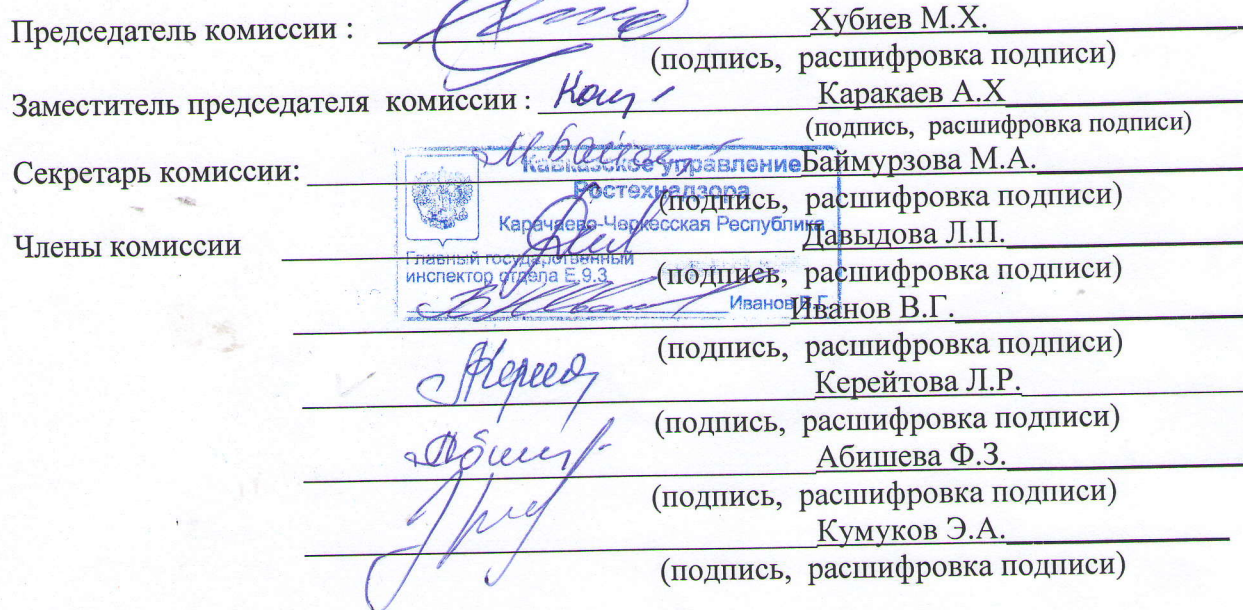 Председатель комиссии : Хубиев М.Х.
(подпись, расшифровка подписи)
Заместитель председателя комиссии : Каракаев А.Х
(подпись, расшифровка подписи)
Секретарь комиссии: Баймурзова М.А.
(подпись, расшифровка подписи)
Члены комиссии Давыдова Л.П.
(подпись, расшифровка подписи)
Иванов В.Г.
(подпись, расшифровка подписи)
Керейтова Л.Р.
(подпись, расшифровка подписи)
Абишева Ф.З.
(подпись, расшифровка подписи)
Кумуков Э.А.
(подпись, расшифровка подписи)
Кавказское управление
Ростехнадзора
Карачаево-Черкесская Республика
Главный государственный
инспектор отдела Е.9.3
Иванов В.Г.